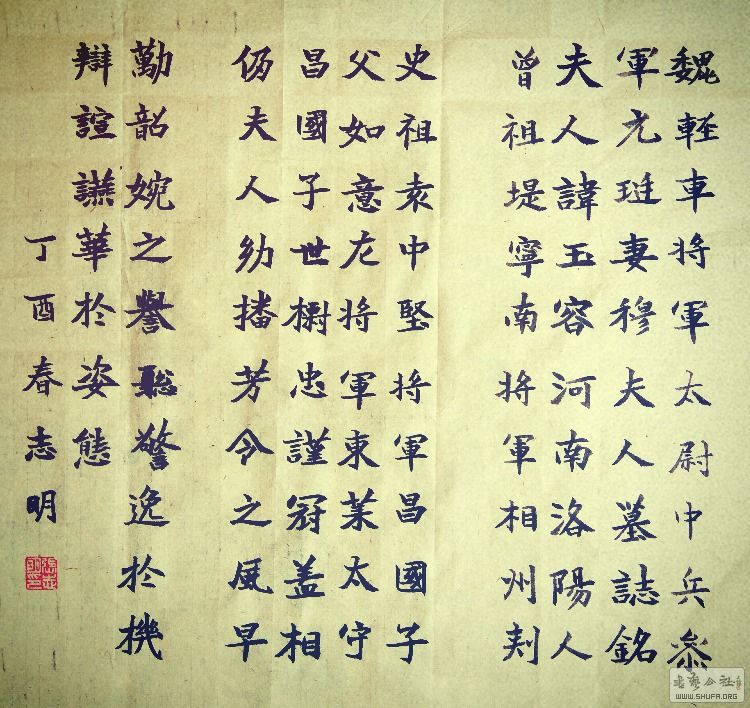 魏輕車将軍太尉中兵叅
軍元珽妻穆夫人墓誌銘
夫人諱玉容河南洛陽人
曾祖堤寧南将軍相州刾
史祖袁中堅将軍昌國子
父如意左将軍東莱太守
昌國子世樹忠謹冠盖相
仍夫人幼播芳令之風早
勤韶婉之譽聡警逸扵機
辯諠讌華扵姿態
丁酉春志明
書藝公社
WWW.SHUFA.ORG